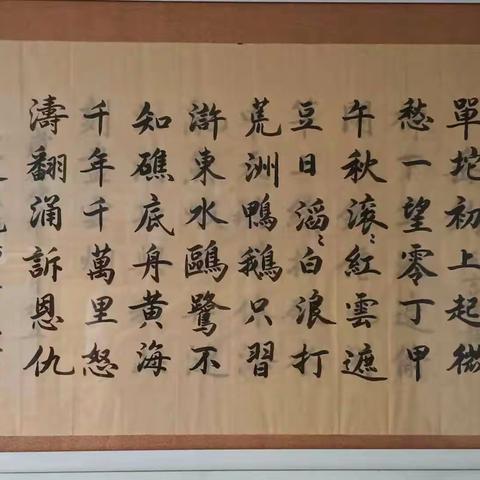 單坨初上起微
愁一望零丁甲
午秋滚〻紅雲遮
豆日滔〻白浪打
荒洲鴨鵝只習
滸東水鷗鷺不
知礁底舟黄海
千年千萬里怒
濤翻涌訴恩仇